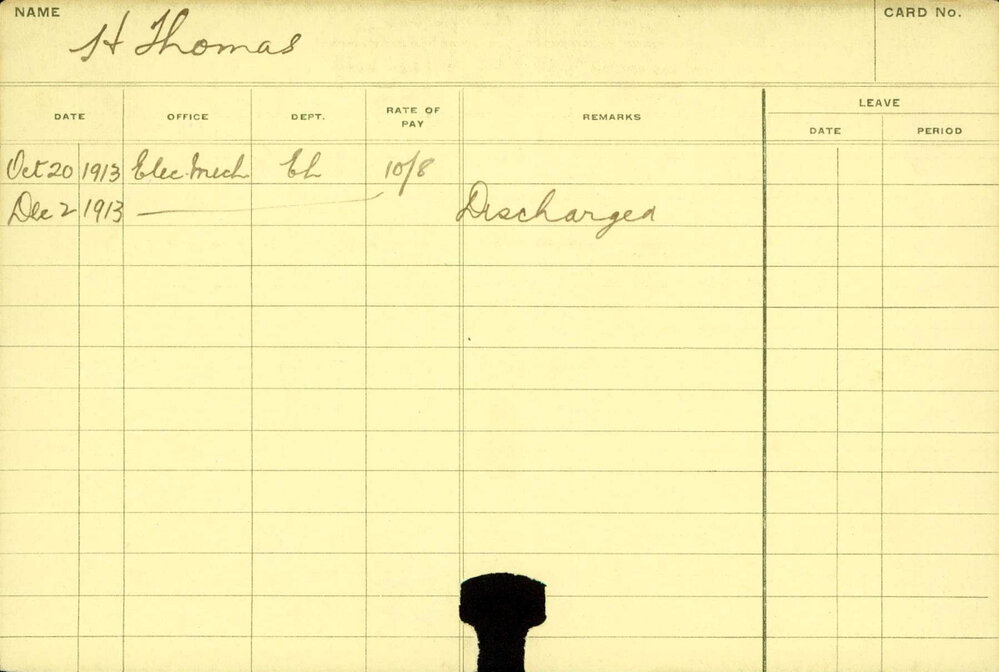 NAME
H Thomas
CARD No.
DATE OFFICE DEPT. RATE OF PAY REMARKS LEAVE
DATE PERIOD
Oct 20 1913 Elec. Mech El 10/8
Dec 2 1913 — Discharged